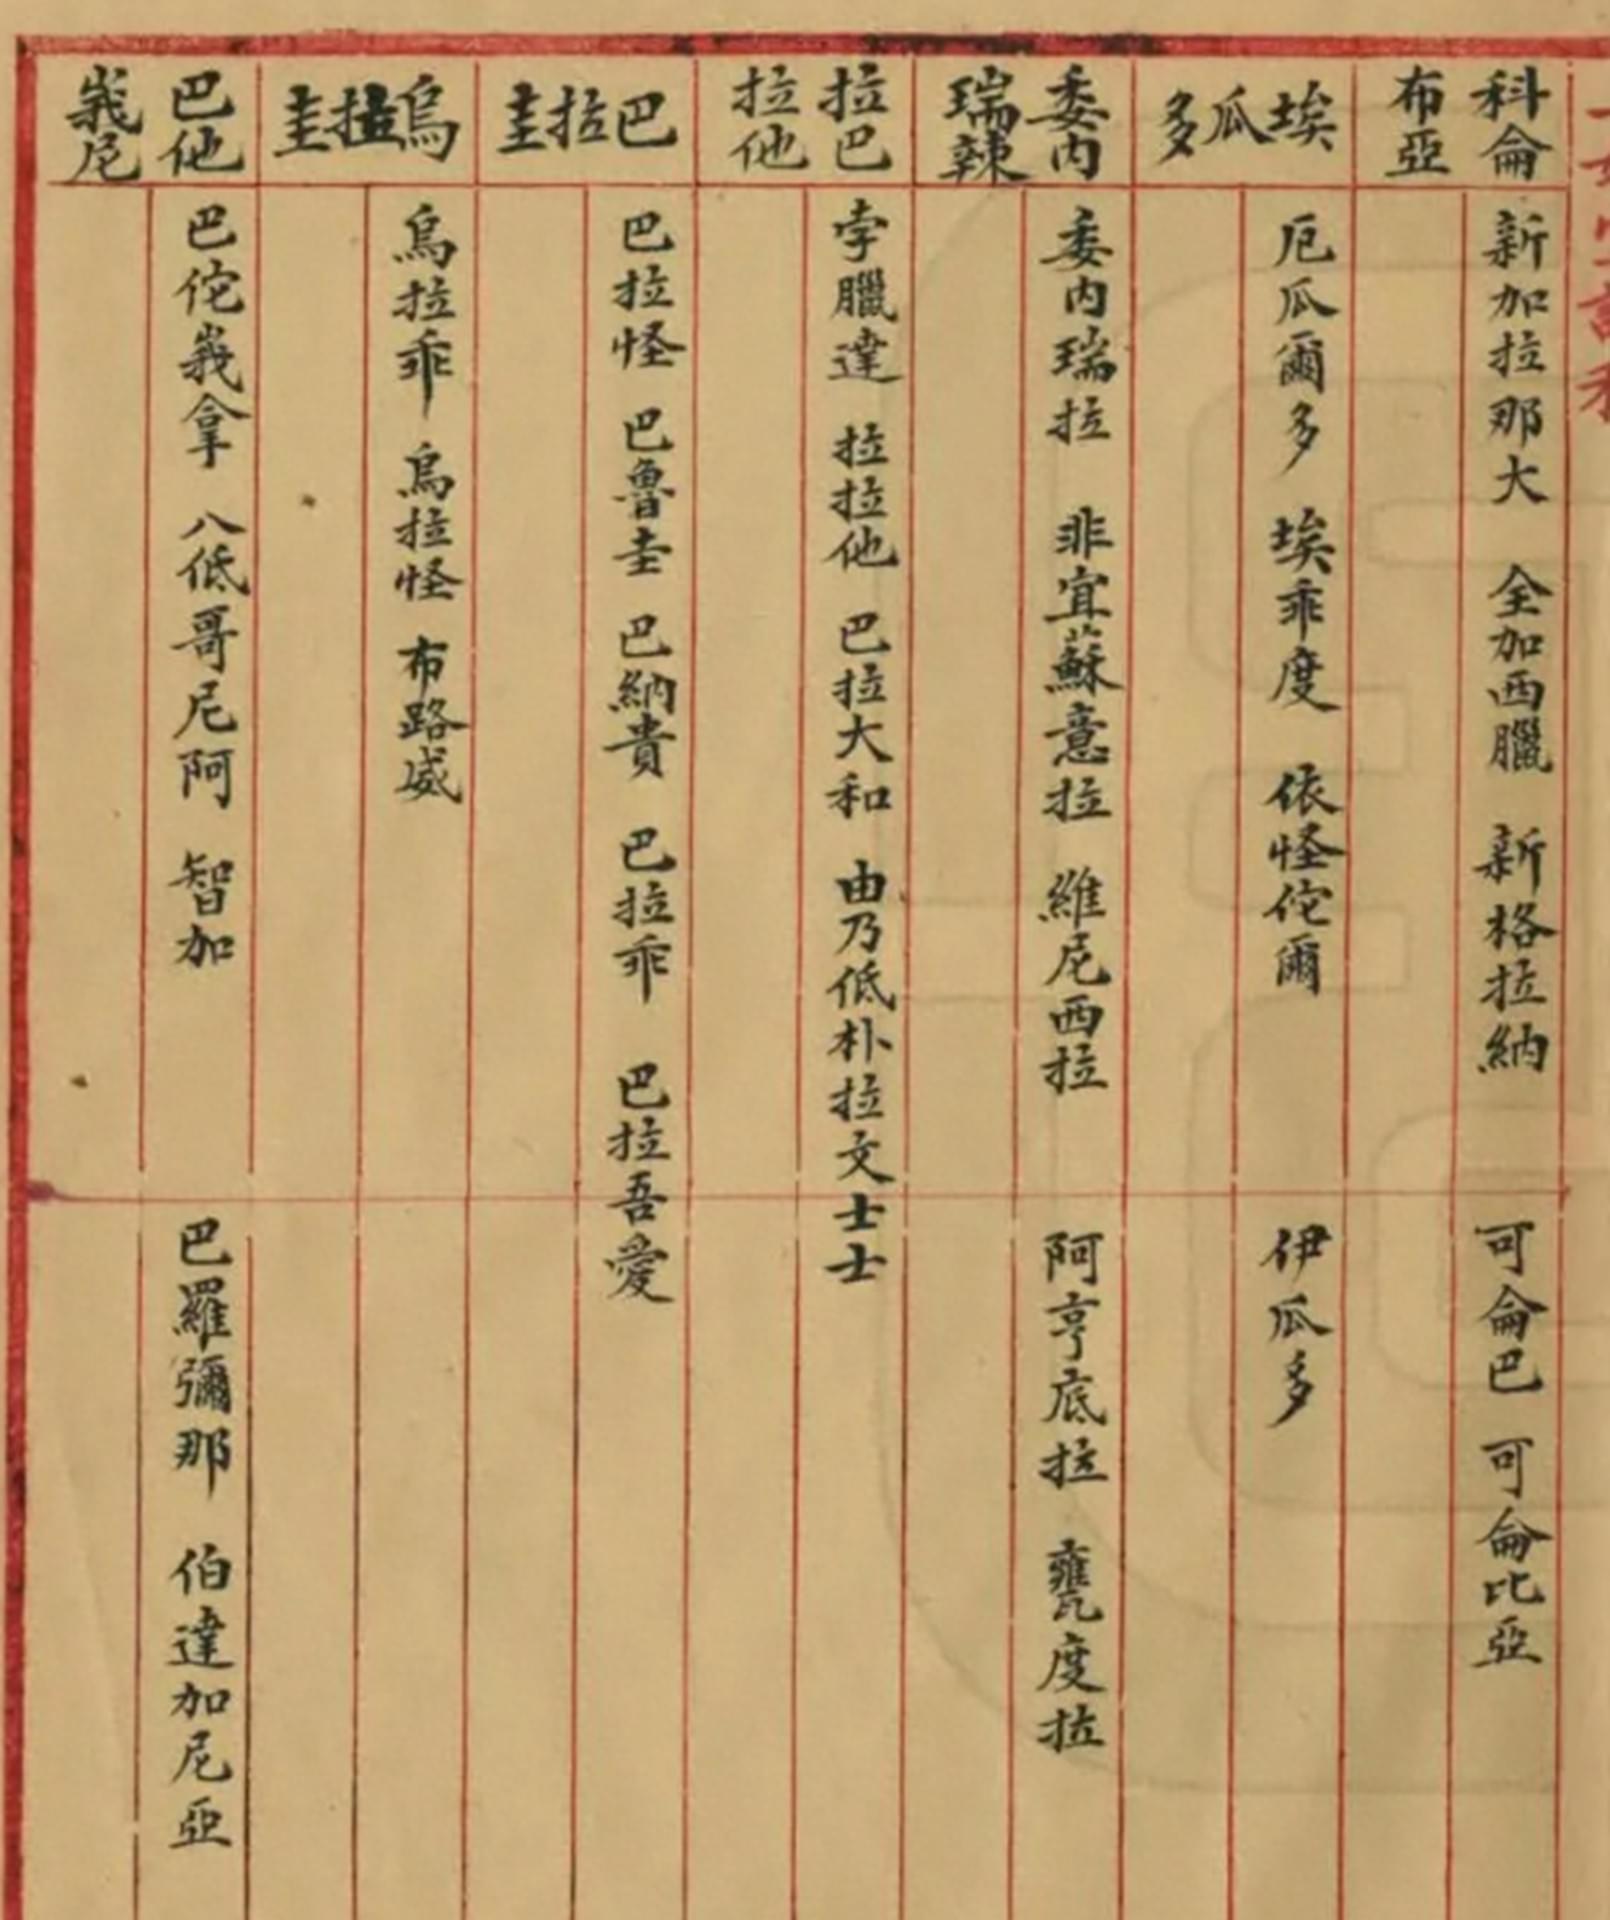 科侖布亞
新加拉那大 全加西臘 新格拉納
可侖巴 可侖比亞
埃瓜多
厄瓜爾多 埃乖度 依怪佗爾
伊瓜多
委內瑞辣
委內瑞拉 非宜蘇意拉 維尼西拉
阿亨底拉 甕度拉
拉巴拉他
孛臘達 拉拉他 巴拉大和 由乃低朴拉文士士
巴拉圭
巴拉怪 巴魯圭 巴納貴 巴拉乖 巴拉吾愛
烏拉圭
烏拉乖 烏拉怪 布路威
巴他峩尼
巴佗峩拿 八低哥尼阿 智加
巴羅彌那 伯達加尼亞